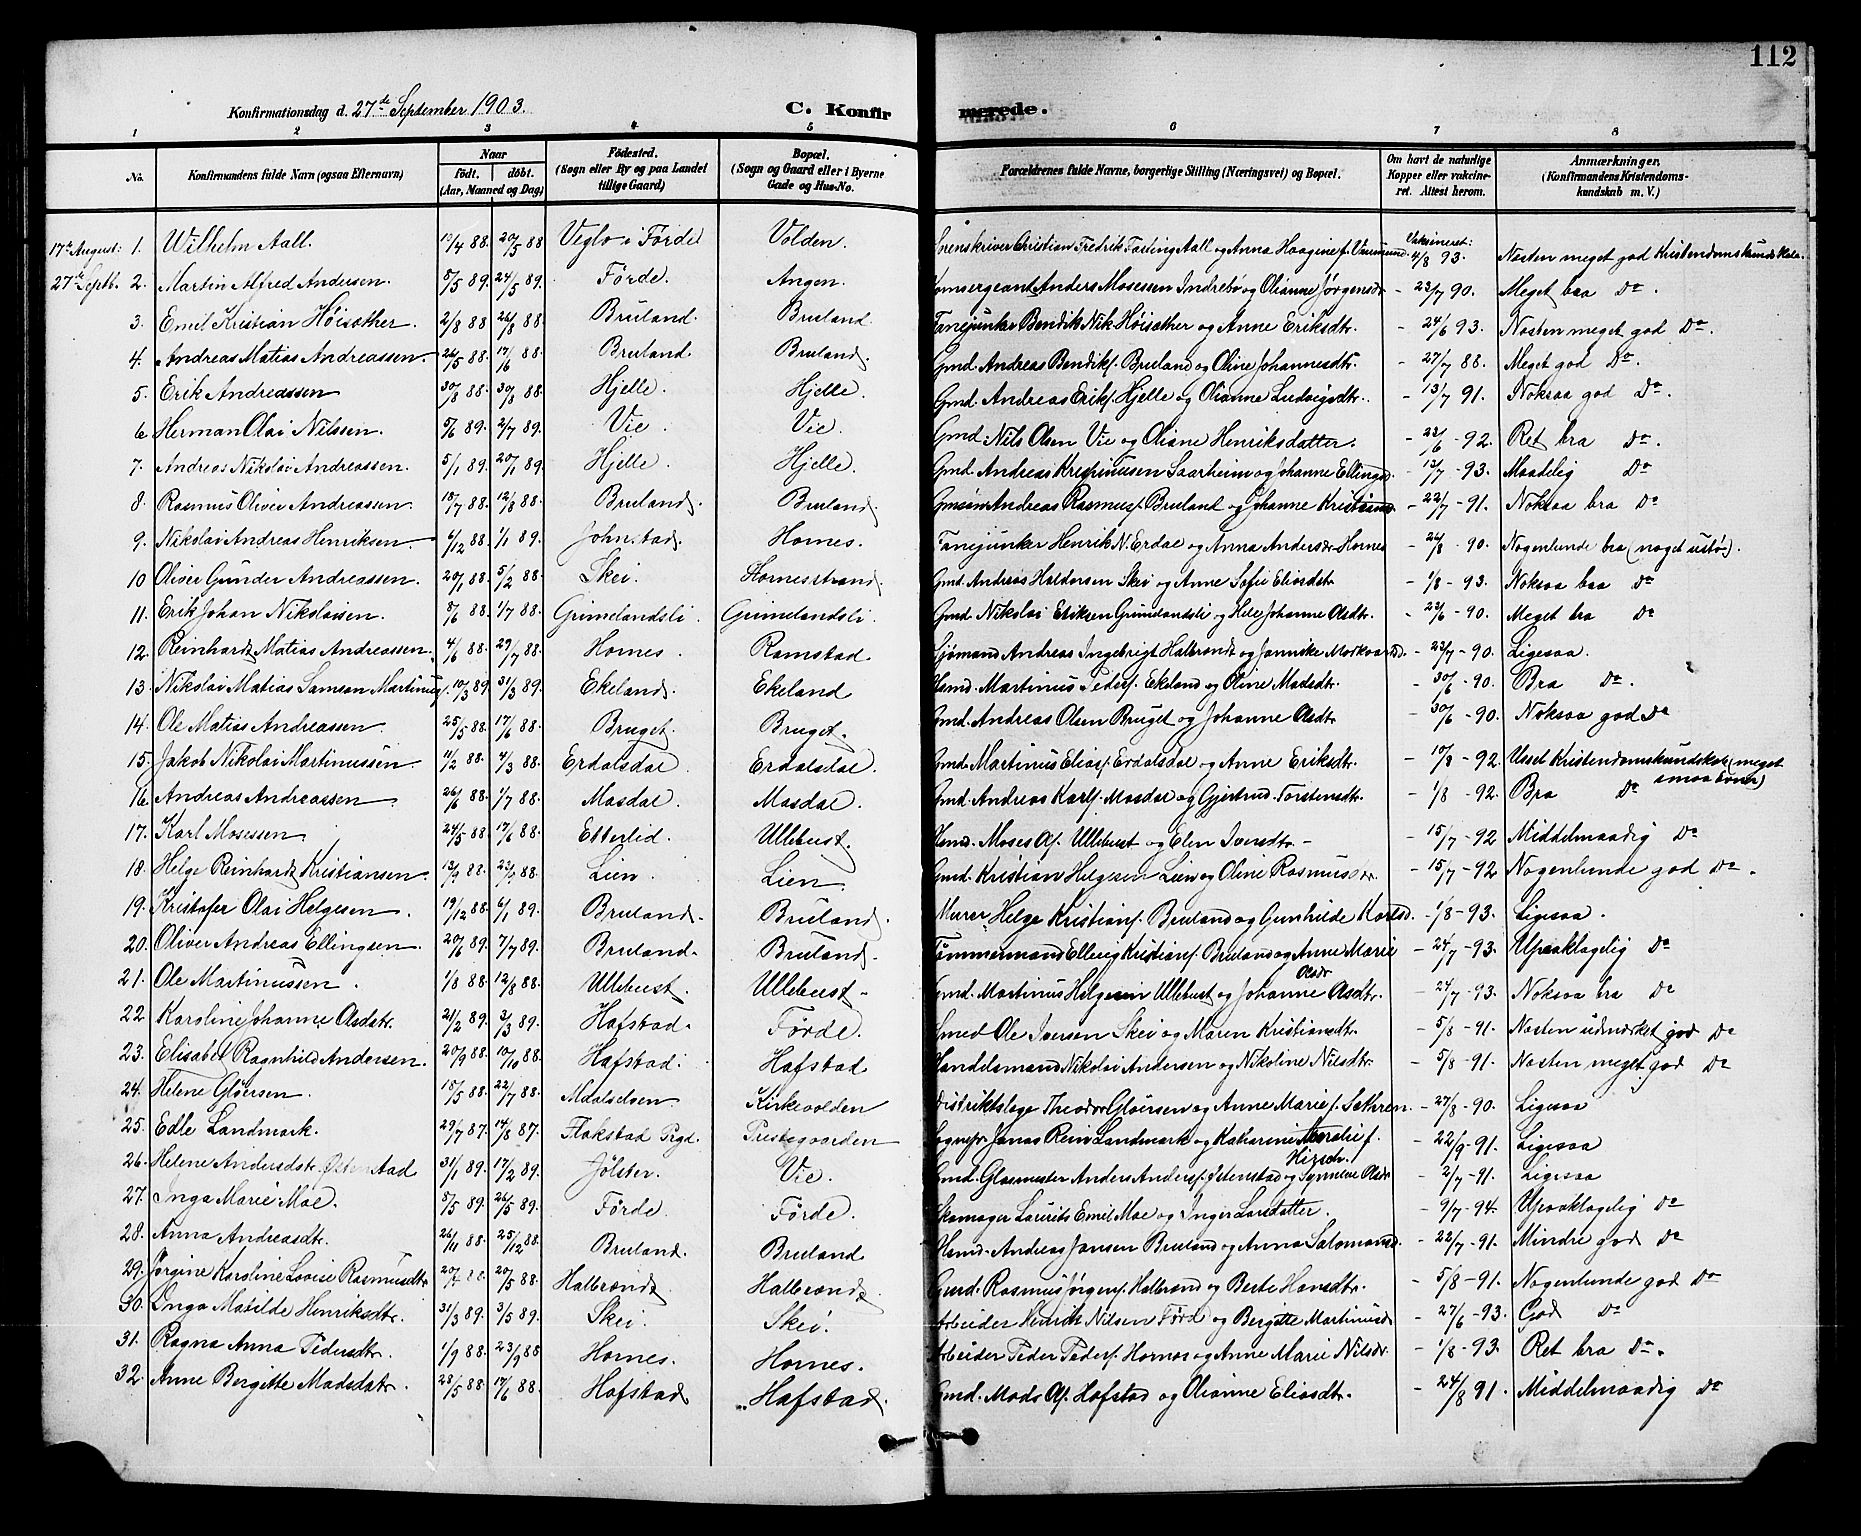 112
Konfirmationsdag d. 27de September 1903. C. Konfirmerede.
1 2 3 4 5 6 7 8
No. Konfirmandens fulde Navn (ogsaa Efternavn) Naar født. døbt. (Aar, Maaned og Dag) Fødested. (Sogn eller By og paa Landet tillige Gaard) Bopæl. (Sogn og Gaard eller i Byerne Gade og Hus-No. Forældrenes fulde Navne, borgerlige Stilling (Næringsvei) og Bopæl. Om havt de naturlige Kopper eller vakcineret. Attest herom. Anmærkninger. (Konfirmandens Kristendomskundskab m. V.)
17de August: 1. Wilhelm Aall. 19/4 88. 20/5 88 Veglo i Førde Volden. Sorenskriver Christian Fredrik Fasting Aall og Anna Haagine f. Vaksineret: 4/8 93. Næsten meget god Kristendomskundskab.
27de Septb. 2. Martin Alfred Andersen. 5/5 89. 24/5 89. Førde. Angen. Anders Mosessen Indrebø og Olianne Jørgensdr - 23/7 90. Meget bra Do.
3. Emil Kristian Høisæther. 2/8 88 26/8 88. Bruland. Bruland Fanejunker Bendik Nik Høisæther og Anne Eriksdtr. - 24/6 93. Næsten meget god Do.
4. Andreas Matias Andreassen 26/5 88. 17/6 88. Bruland. Bruland. Gmd. Andreas Bendiks. Bruland og Oline Johannesdtr. - 27/7 88. Meget god Do.
5. Erik Andreassen 30/8 88. 30/8 88. Hjelle. Hjelle. Gmd. Andreas Eriks. Hjelle og Olianne Ludvigsdtr. - 13/7 91. Noksaa god Do.
6 Herman Olai Nilssen. 5/6 89. 2/7 89. Vie. Vie. Gmd. Nils Olsen Vie og Oliane Henriksdatter. - 22/6 - 92. Ret bra Do.
7. Andreas Nikolai Andreassen. 5/1 89. 20/1 89. Hjelle. Hjelle. Gmd. Andreas Saarheim og Johanne Ellingsd. - 12/7 - 93. Maadelig Do
8. Rasmus Oliver Andreassen. 18/7 88. 12/8 88. Bruland. Bruland. Andreas Rasmus. Bruland og Johanne - 22/7 - 91. Noksaa bra Do
9. Nikolai Andreas Henriksen. 6/12 88. 1/1 89. Johnstad. Hornes. Fanejunker Henrik N. Erdal og Anna Andersdr Hornes - 26/8 - 90. Nogenlunde bra (noget ustø.)
10 Oliver Gunder Andreassen. 20/1 88. 5/2 88. Skei. Hornesstrand. Gmd. Andreas Haldorsen Skei og Anne Sofie Eliasdtr - 1/8 - 93. Noksaa bra Do
11. Erik Johan Nikolaisen. 8/6 88. 1/7 88. Grimelandsli Grimelandsli. Gmd. Nikolai Eriksen Grimelandsli og Johanne Olsdtr. - 22/6 - 90. Meget bra Do
12. Reinhardt Matias Andreassen. 4/6 88. 29/7 88. Hornes. Ramstad. Sjømand Andreas Ingebrigt Halbrendt og Jannike - 23/7 - 90. Ligesaa.
13. Nikolai Matias Samson Martinus. 10/3 89. 31/3 89. Ekeland. Ekeland Martinus Peders. Ekeland og Oline Madsdtr. - 30/6 - 90. Bra Do.
14. Ole Matias Andreassen. 25/5 88. 17/6 88. Bruget. Bruget. Gmd. Andreas Olsen Bruget og Johanne Olsdtr - 30/6 - 90. Noksaa god Do
15. Jakob Nikolai Martinussen. 11/2 88. 4/3 88. Erdalsdal Erdalsdal. Gmd. Martinus Elias. Erdalsdal og Anne Eriksdtr. - 10/8 - 92. Ussel Kristendomskundskab (meget smaa Evner)
16. Andreas Andreassen 26/6 88. 1/7 88. Masdal. Masdal. Gmd. Andreas Karls. Masdal og Gjertrud Torstensdtr. - 1/8 - 92. Bra Do
17. Karl Mosessen 24/5 88. 17/6 88. Etterlid. Ullebust. Moses Ols. Ullebust og Elen Iversdtr. - - 15/7 - 92 Middelmaadig Do
18. Helge Reinhardt Kristiansen. 13/9 88. 23/9 88. Lien. Lien. Gmd. Kristian Helgesen Lien og Oline - 15/7 - 92 Nogenlunde god Do.
19. Kristofer Olai Helgesen. 19/12 88. 6/1 89. Bruland. Bruland. Murer Helge Kristians. Bruland og Gunhilde Karlsd. - 1/8 - 93. Ligesaa.
20. Oliver Andreas Ellingsen. 20/6 89. 7/7 89. Bruland. Bruland. Tømmermand Elling Kristians. Bruland og Anne Marie Olsdr - 24/7 - 93. Upaaklagelig Do
21. Ole Martinussen. 1/8 88. 12/8 88. Ullebust. Ullebust. Gmd. Martinus Helgesen Ullebust og Johanne Olsdtr. - 24/7 - 93. Noksaa bra Do
22 Karoline Johanne Olsdatr. 21/2 89. 3/3 89. Hafstad. Førde. Smed Ole Iversen Skei og Maren Kristiansdtr. - 5/8 - 91. Næsten udmærket god Do
23. Elisabet Ragnhild Andersen. 20/9 88. 10/10 88. Hafstad. Hafstad Handelsmand Nikolai Andersen og Nikoline Nilsdtr - 5/8 - 91. Næsten meget god Do
24. Helene Gløersen. 18/5 88. 22/7 88. Kirkevolden Distriktslæge Theodor Gløersen og Anne Marie f. Sethren. - 27/8 - 90. Ligesaa
25. Edle Landmark. 29/7 87. 14/8 87. Flakstad Prgd. Prestegaarden Sognepr. Jonas Rein Landmark og Katharine Amalie f. Hirsch. - 22/9 - 91. Ligesaa
26. Helene Andersdtr. Østenstad 31/1 89. 17/2 89. Jølster. Vie. Gmd. Glasmester Anders Anders. Østenstad og Synneve Olsdr - 2/7 - 91. Ligesaa
27. Inga Marie Moe. 8/5 89. 26/5 89. Førde. Førde. Skomager Laurits Emil Moe og Inger Larsdatter. - 9/7 - 94. Upaaklagelig Do
28. Anna Andreasdtr. 26/11 88. 25/12 88. Bruland. Bruland Andreas Jansen Bruland og Anna Salomonsd. - 22/7 - 91. Mindre god Do
29. Jørgine Karoline Lovise Rasmusdtr 20/5 88. Halbrend. Halbrend. Rasmus Jørgens. Halbrend og Berte Hansdtr. - 5/8 - 91. Nogenlunde god Do
30. Inga Matilde Henriksdtr. 31/3 89. 3/5 89. Skei. Skei. Arbeider Henrik Nilsen Førde og Bergitte Martinusdr - 27/6 - 93. God Do
31. Ragna Anna Pedersdtr. 1/9 88. 23/9 88 Hornes. Hornes. Arbeider Peder Peders. Hornes og Anne Marie Nilsdr. - 1/8 - 93. Ret bra Do.
32. Anne Bergitte Madsdatr. 28/5 88. 17/6 88. Hafstad Hafstad. Gmd. Mads Ols. Hafstad og Olianne Eliasdtr. - 24/8 91. Middelmaadig Do